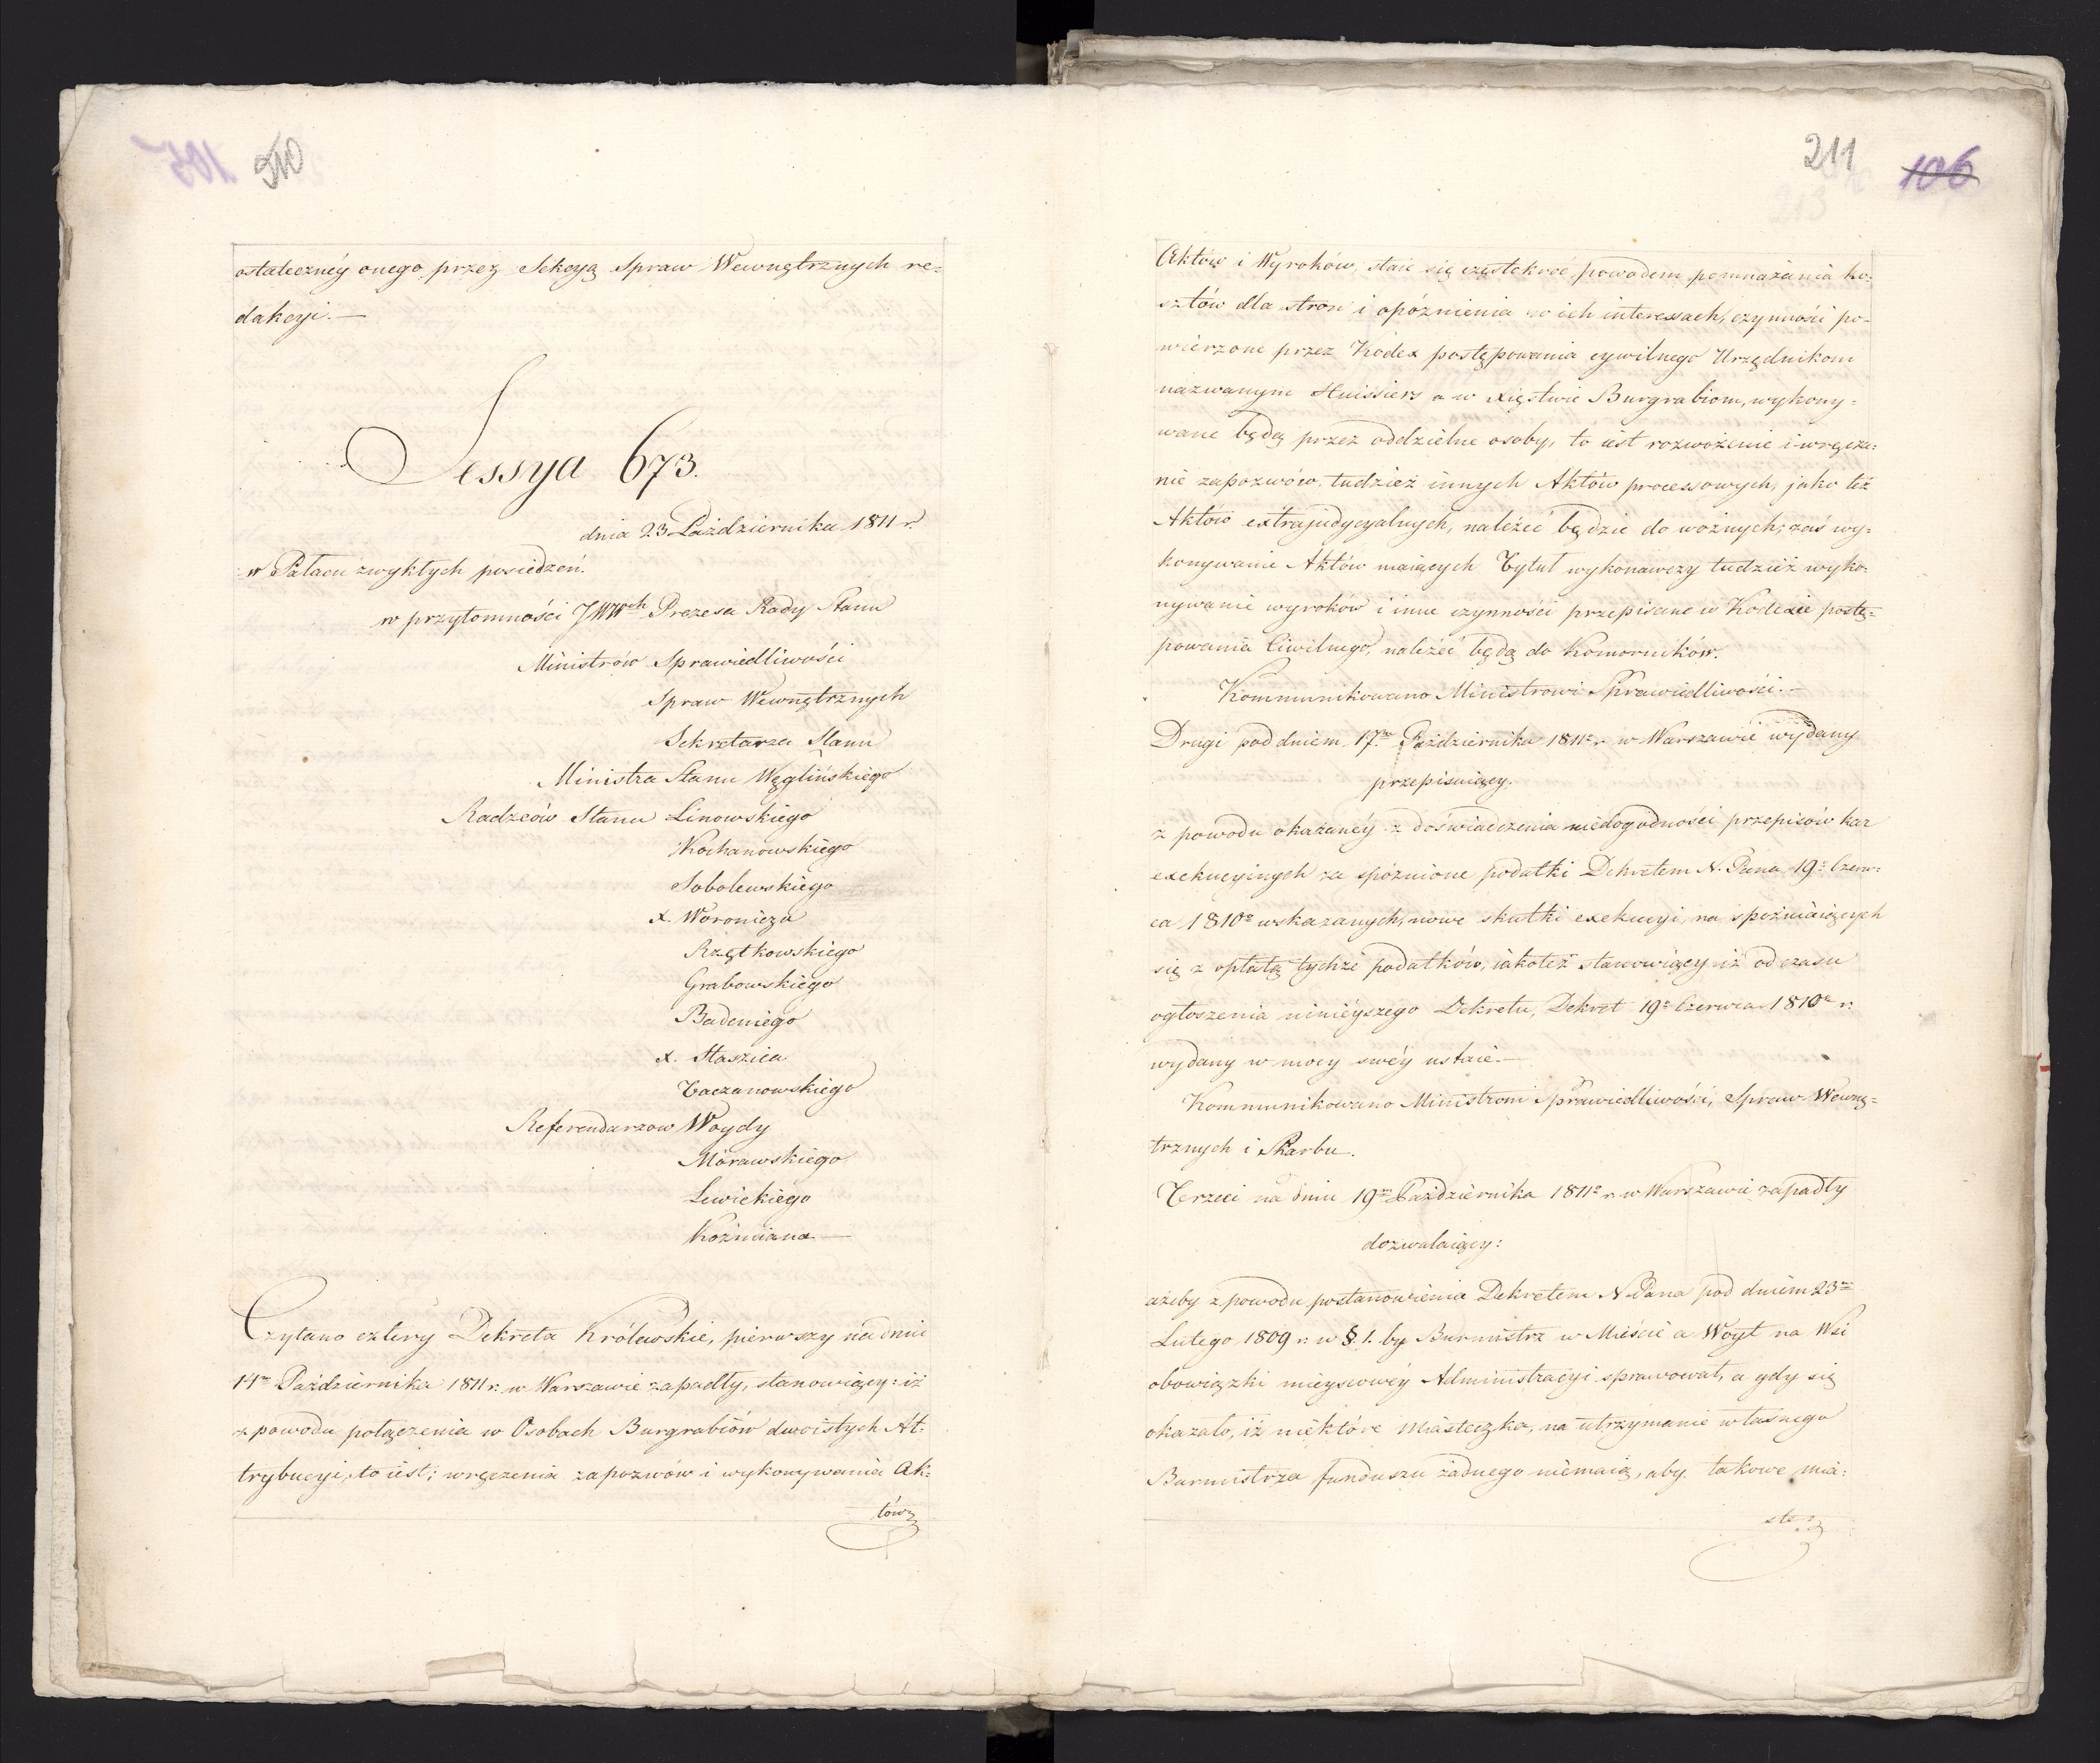 210
ostateczney onego przez Sekcyą Spraw Wewnętrznych re=
dakcyi.—
Sessya 673.
dnia 23 Października 1811 r.
w Pałacu zwykłych posiedzeń.
w przytomności JWWch Prezesa Rady Stanu
Ministrów Sprawiedliwości
Spraw Wewnętrznych
Sekretarza Stanu
Ministra Stanu Węglińskiego
Radzców Stanu Linowskiego
Kochanowskiego
Sobolewskiego
x. Woronicza
Rzętkowskiego
Grabowskiego
Badeniego
x. Staszica
Taczanowskiego
Referendarzow Woydy
Morawskiego
Lewickiego
Koźmiana—
Czytano cztery Dekreta Królewskie, pierwszy na dniu
14m Października 1811 r. w Warszawie zapadły, stanowiący: iż
z powodu połączenia w Osobach Burgrabiów dwoistych At=
trybucyi, to iest; wręczenia zapozwów i wykonywania Ak=
tów
211
106
Aktów i Wyroków, staie się częstokroć powodem pomnażania ko=
sztów dla stron i opóznienia w ich interessach, czynności po=
wierzone przez Kodex postępowania cywilnego Urzędnikom
nazwanym Huissiers a w Xięstwie Burgrabiom, wykony=
wane będą przez oddzielne osoby, to iest rozwożenie i wręcza=
nie zapozwów, tudzież innych Aktów processowych, jako też
Aktów extrajudycyalnych, należeć będzie do woźnych; zaś wy=
konywanie Aktów maiących Tytuł wykonawczy tudzież wyko=
nywanie wyroków i inne czynności przepisane w Kodexie postę=
powania Ciwilnego, należeć będą do Komorników.
Kommunikowano Ministrowi Sprawiedliwości.—
Drugi pod dniem 17m Października 1811o r. w Warszawie wydany
przepisuiący.
z powodu okazaney z doświadczenia niedogodności przepisów kar
exekucyinych za spóznione podatki Dekretem N. Pana 19o Czerw=
ca 1810o wskazanych, nowe skutki exekucyi, na spoźniaiących
się z opłatą tychże podatków, iakoteż stanowiący iż od czasu
ogłoszenia ninieyszego Dekretu, Dekret 19o Czerwca 1810o r.
wydany w mocy swéy ustaie.—
Kommunikowano Ministrom Sprawiedliwości, Spraw Wewnę=
trznych i Skarbu.
Trzeci na dniu 19m Października 1811o r. w Warszawie zapadły
dozwalaiący:
ażeby z powodu postanowienia Dekretem N. Pana pod dniem 23m
Lutego 1809 r. w §. 1. by Burmistrz w Mieście a Woyt na Wsi
obowiązki mieyscowéy Administracyi sprawował, a gdy się
okazało, iż niektóre Miasteczka, na utrzymanie własnego
Burmistrza funduszu żadnego niemaią, aby takowe mia=
ste